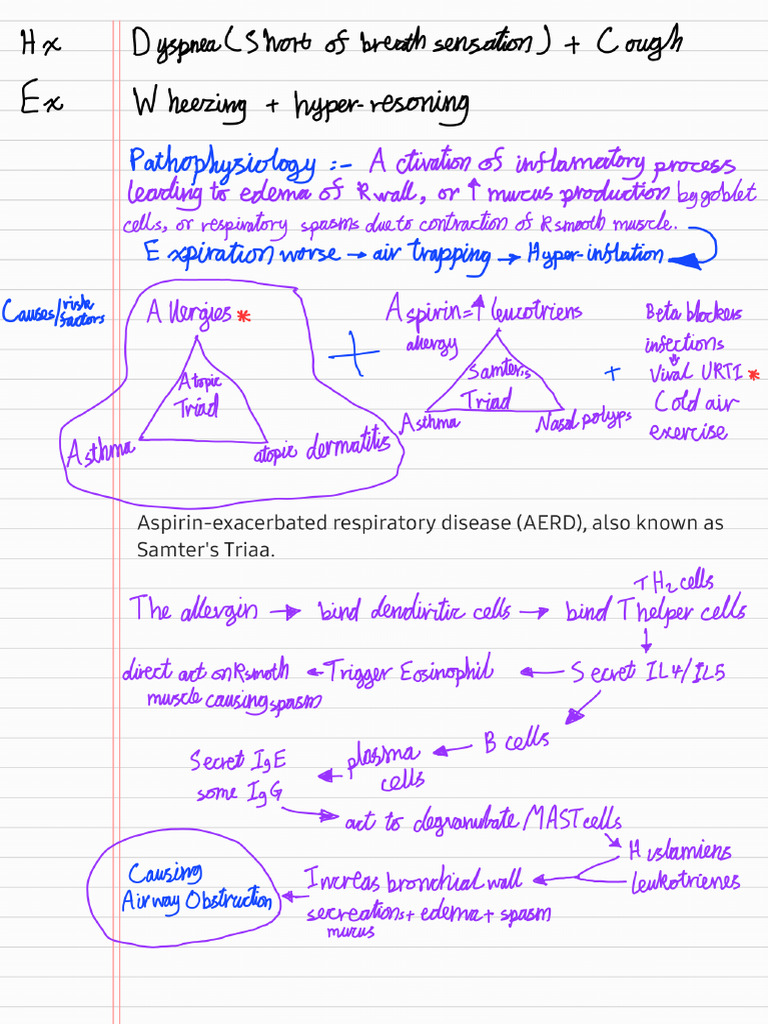 Hx Dyspnea (Short of breath sensation) + Cough
Ex Wheezing + hyper-resoning
Pathophysiology :- Activation of inflamatory process
leading to edema of R wall, or ↑ mucus production by goblet
cells, or respiratory spasms due to contraction of R smooth muscle.
Expiration worse → air trapping → Hyper-inflation
Causes/risk factors
Allergies *
Atopic
Triad
Asthma
atopic dermatitis
+
Aspirin = ↑ leucotriens
allergy
Samteris
Triad
Asthma
Nasal polyps
+
Beta blockers
infections
↓
Viral URTI *
Cold air
exercise
Aspirin-exacerbated respiratory disease (AERD), also known as
Samter's Triaa.
TH2 cells
The allergin → bind dendirtic cells → bind T helper cells
↓
Secret IL4/IL5
← Trigger Eosinophil
← direct act on R smoth
muscle causing spasm
B cells
← plasma
cells
← Secret IgE
some IgG
→ act to degranulate MAST cells
Histamiens
leukotrienes
← Increas bronchial wall
secreations + edema + spasm
mucus
← Causing
Airway Obstruction